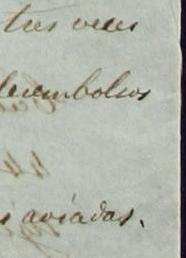 tres veces
desembolsos
aviadas.